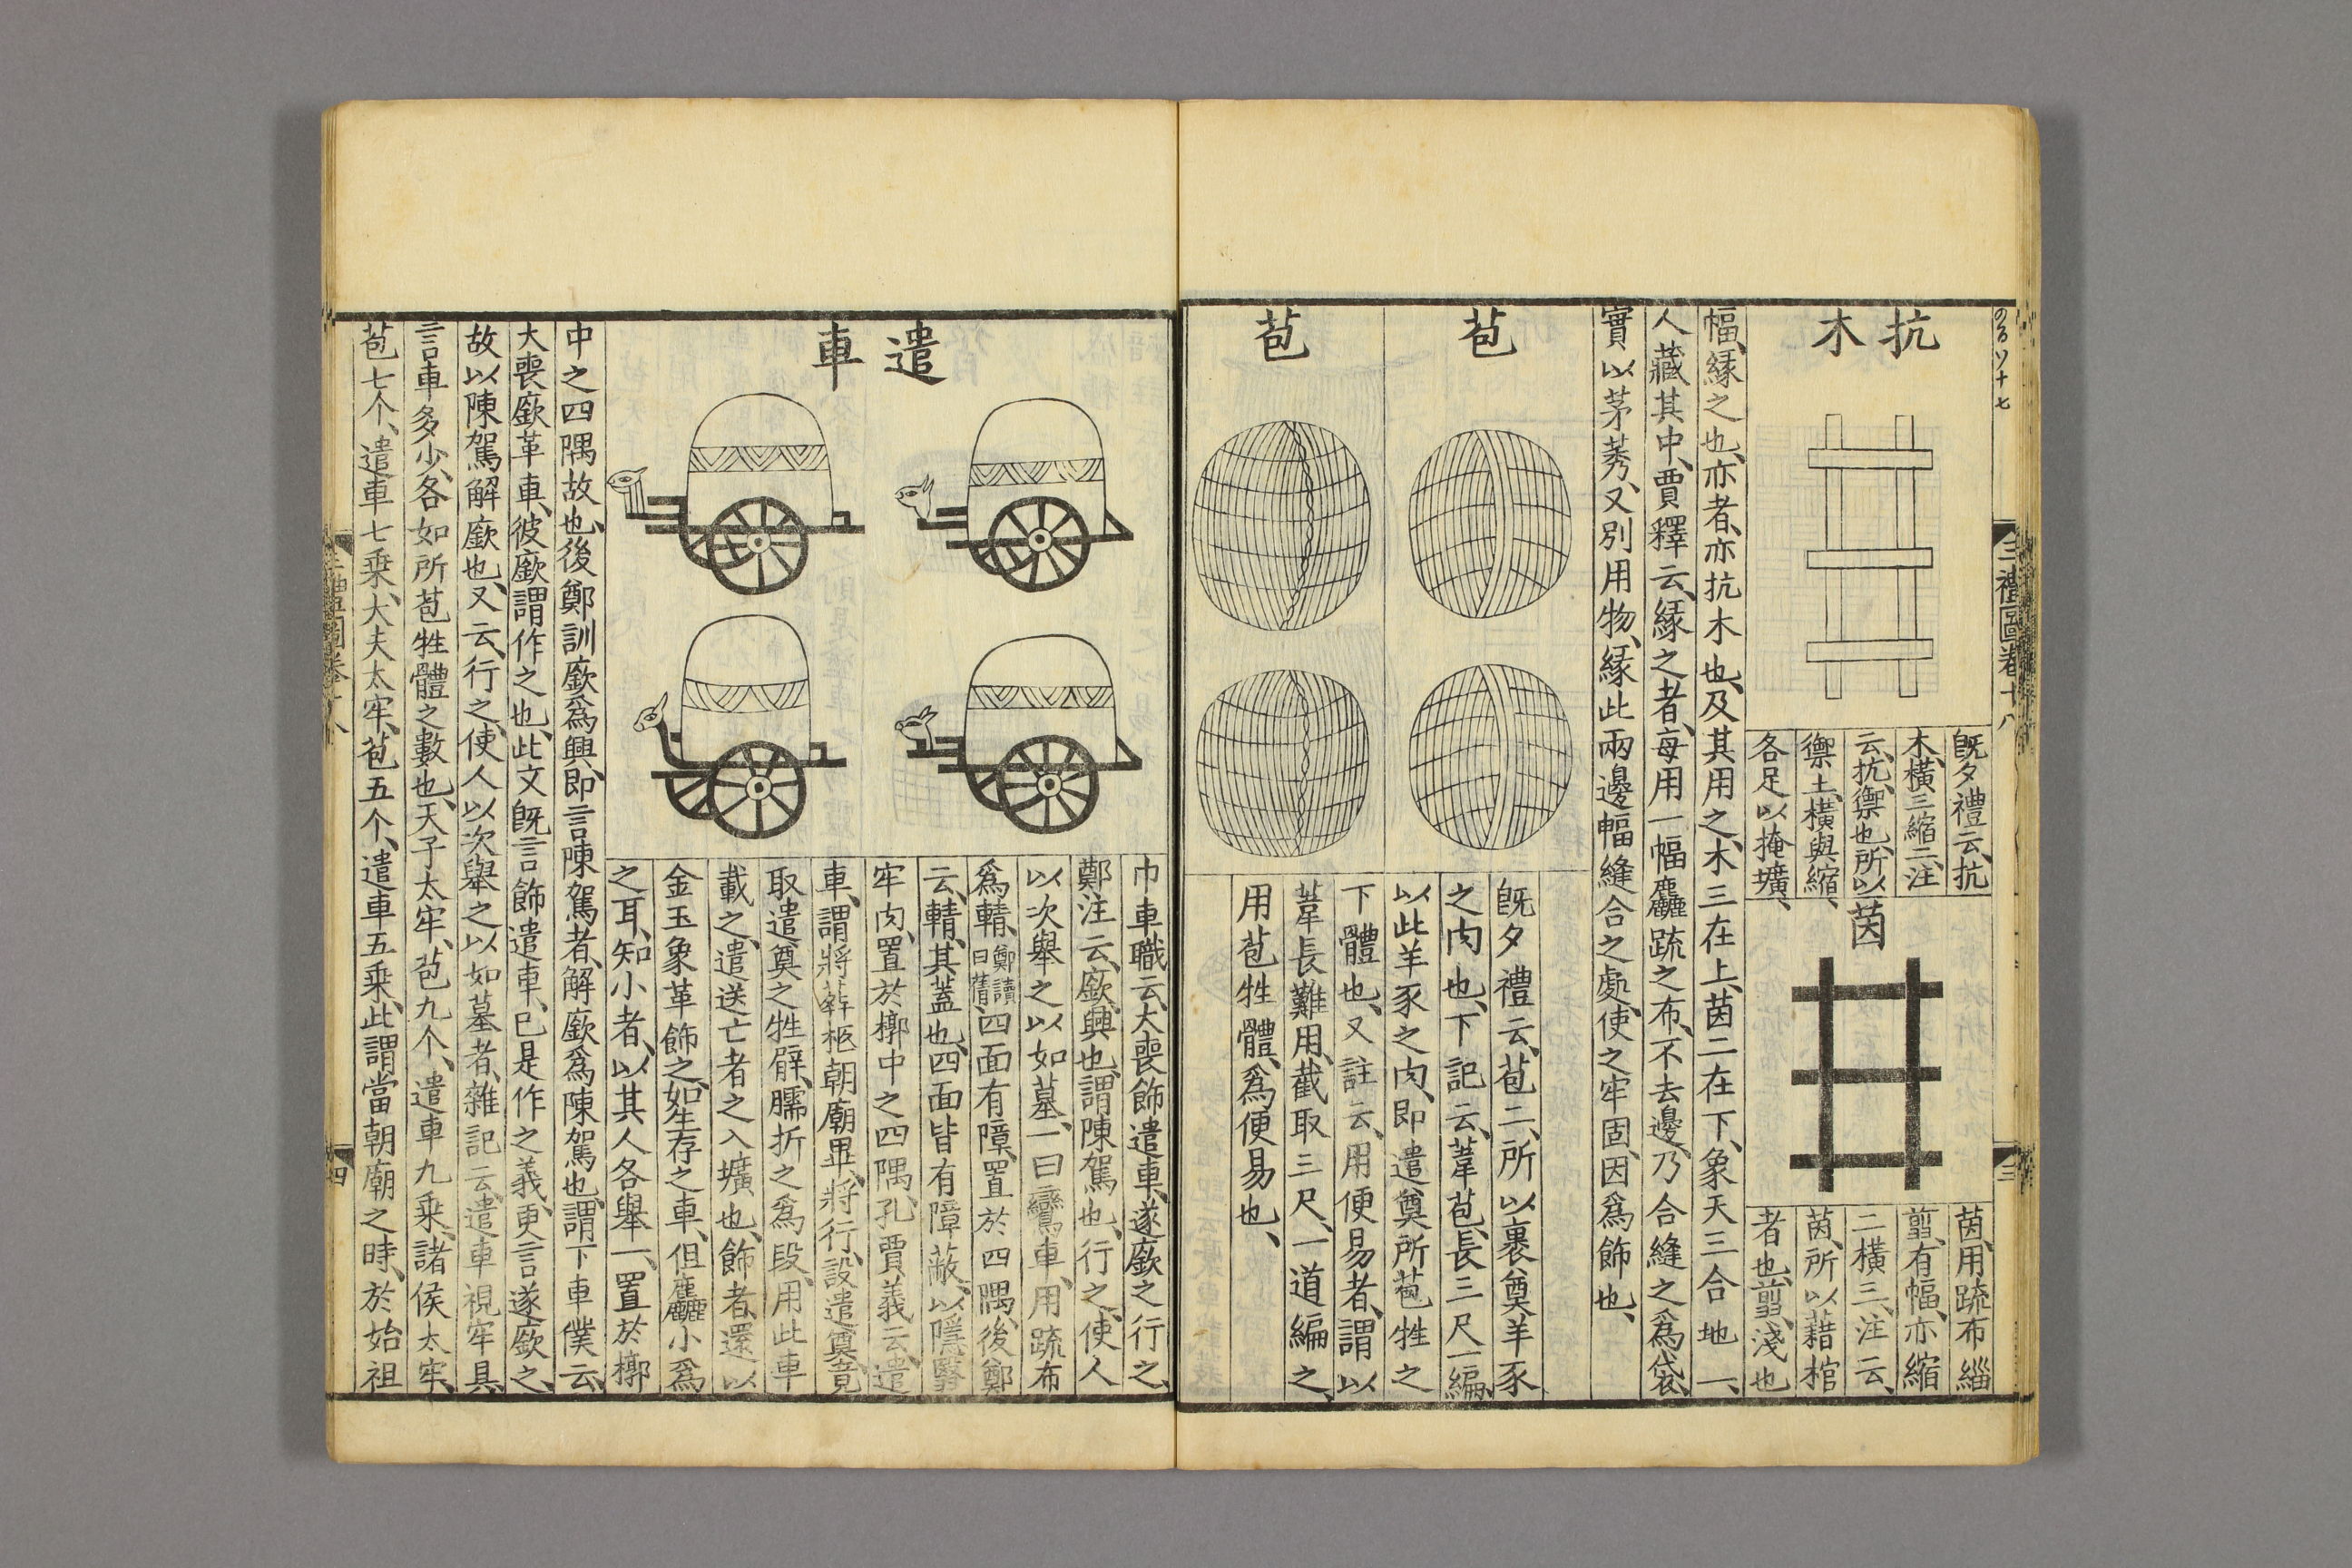 三禮圖卷十八
三
抗木
既夕禮云抗
木橫三縮二注
云抗禦也所以
禦土橫與縮
各足以掩壙、
茵
茵用疏布緇
翦有幅亦縮
二橫三注云
茵所以藉棺
者也翦淺也
幅緣之也亦者亦抗木也及其用之木三在上茵二在下象天三合地一、
人藏其中賈釋云緣之者每用一幅麤疏之布不去邊乃合縫之爲袋
實以茅莠又別用物緣此兩邊幅縫合之處使之牢固因爲飾也、
苞
苞
既夕禮云苞二所以裹奠羊豕
之肉也下記云葦苞長三尺一編
以此羊豕之肉即遣奠所苞牲之
下體也又註云用便易者謂以
葦長難用截取三尺一道編之、
用苞牲體爲便易也、
遣車
巾車職云大喪飾遣車遂廞之行之
鄭注云廞興也謂陳駕也行之使人
以次舉之以如墓一曰鸞車用疏布
爲輤鄭讀曰蒨四面有障置於四隅後鄭
云輤其蓋也四面皆有障蔽以隱翳
牢肉置於槨中之四隅孔賈義云遣
車謂將葬柩朝廟畢將行設遣奠竟
取遣奠之牲臂臑折之爲段用此車
載之遣送亡者之入壙也飾者還以
金玉象革飾之如生存之車但麤小爲
之耳知小者以其人各舉一置於槨
中之四隅故也後鄭訓廞爲興即言陳駕者解廞爲陳駕也謂下車僕云
大喪廞革車彼廞謂作之也此文既言飾遣車已是作之義更言遂廞之
故以陳駕解廞也又云行之使人以次舉之以如墓者雜記云遣車視牢具
言車多少各如所苞牲體之數也天子太牢苞九个遣車九乘諸侯太牢
苞七个遣車七乘大夫太牢苞五个遣車五乘此謂當朝廟之時於始祖
三禮圖卷十八
四